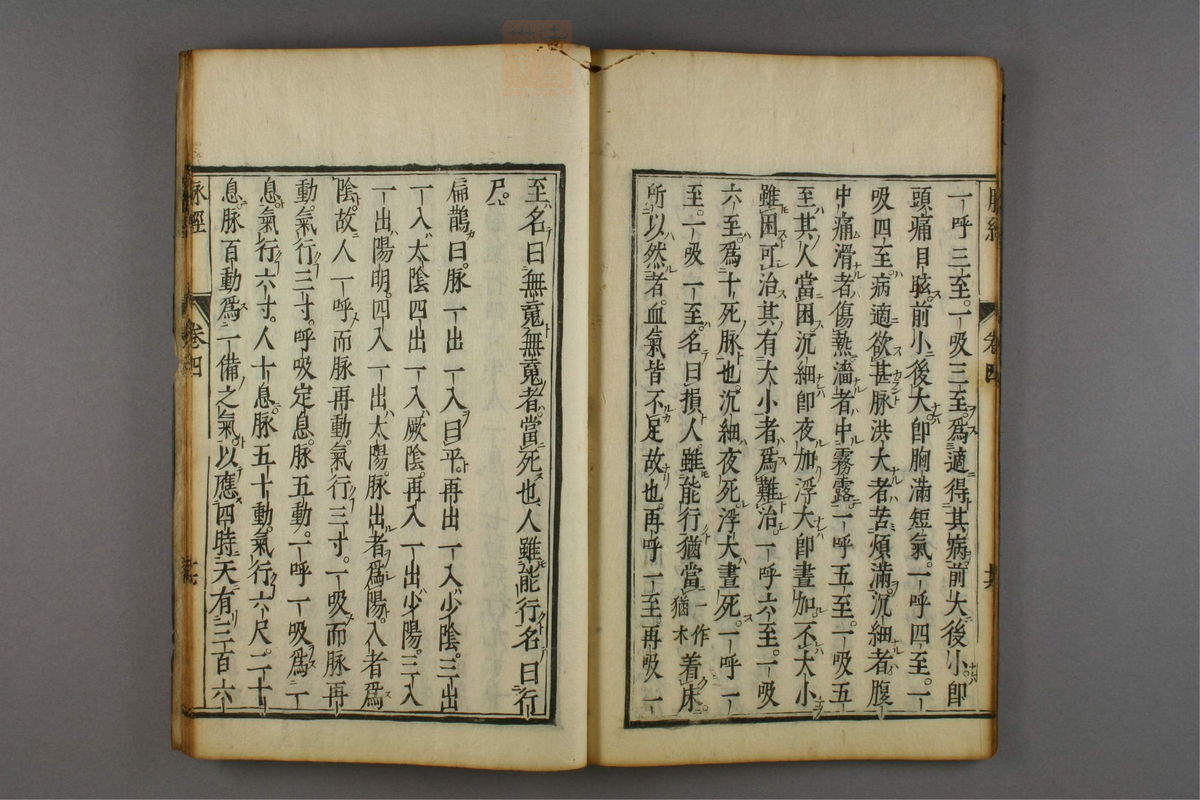 一呼三至。一吸三至。爲適得其病。前大後小。卽
頭痛目眩。前小後大。卽胸滿短氣。一呼四至。一
吸四至。病適欲甚。脉洪大者。苦煩滿。沉細者。腹
中痛。滑者傷熱。濇者中霧露。一呼五至。一吸五
至。其人當困。沉細卽夜加。浮大卽晝加。不大小
雖困可治。其有大小者。爲難治。一呼六至。一吸
六至。爲十死脉也。沉細夜死。浮大晝死。一呼一
至。一吸一至。名曰損。人雖能行。猶當 一作猶未 着床。
所以然者。血氣皆不足故也。再呼一至。再吸一
脉經 卷四
至。名曰無䰟。無䰟者。當死也。人雖能行。名曰行
尸。
扁鵲曰。脉一出一入曰平。再出一入少陰。三出
一入太陰。四出一入厥陰。再入一出少陽。三入
一出陽明。四入一出太陽。脉出者爲陽。入者爲
陰。故人一呼而脉再動。氣行三寸。一吸而脉再
動。氣行三寸。呼吸定息。脉五動。一呼一吸爲一
息。氣行六寸。人十息。脉五十動。氣行六尺。二十
息。脉百動。爲一備之氣。以應四時。天有三百六
脉經 卷四